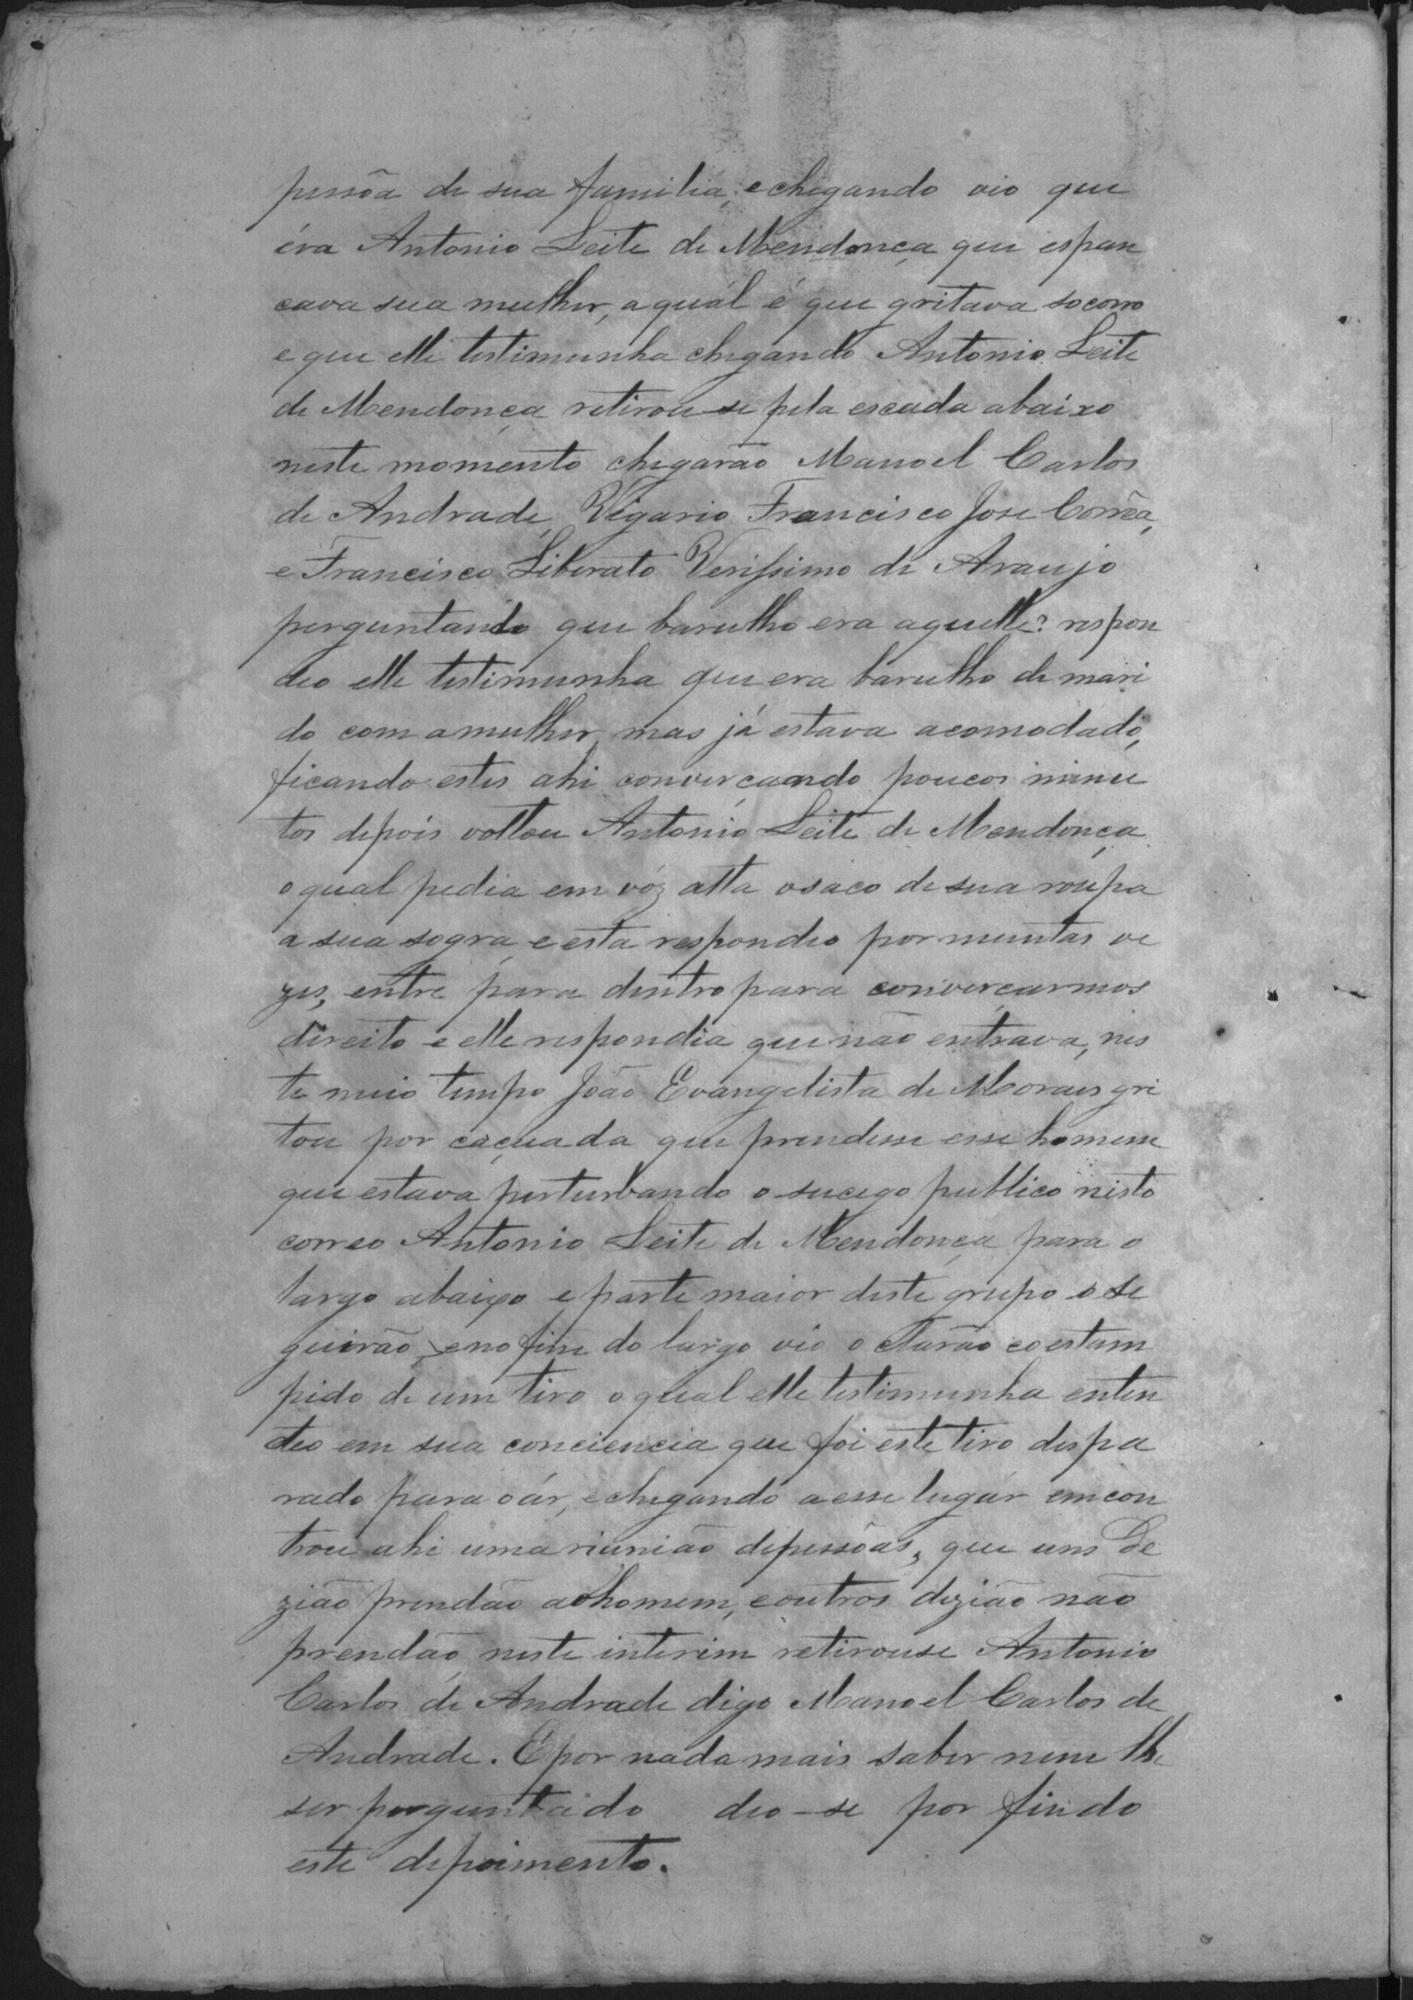 pessôa de sua familia, e chegando vio que
éra Antonio Leite de Mendonça que espan
cava sua mulher, a quál é que gritava socorro
e que elle testimunha chegando Antonio Leite
de Mendonça retirou-se pela escada abaixo
neste momento chegarão Manoel Carlos
de Andrade, Vigario Francisco Jose Corrêa,
e Francisco Liberato Verissimo de Araujo
perguntando que barulho era aquelle? respon
deo elle testimunha que era barulho de mari
do com a mulher, mas já estava acomodado,
ficando estes ahi converçando poucos minu
tos depois voltou Antonio Leite de Mendonça
o qual pedia em vóz alta o saco de sua roupa
a sua sogra, e esta respondeo por muntas ve
zes, entre para dentro para converçarmos
direito e elle respondia que não entrava, nes
te meio tempo João Evangelista de Moraes gri
tou por caçuada que prendesse esse homem
que estava perturbando o sucego publico nisto
correo Antonio Leite de Mendonça para o
largo abaixo e parte maior deste grupo o se
guirão, e no fim do largo vio o clarão e o estam
pido de um tiro o qual elle testimunha enten
deo em sua conciencia que foi este tiro dispa
rado para o ár, e chegando a esse lugár emcon
trou ahi uma riunião de pessôas, que uns de
zião prendão ao homem, e outros dizião não
prendão, neste interim retirouse Antonio
Carlos de Andrade digo Manoel Carlos de
Andrade. E por nada mais saber nem lhe
ser perguntado deo-se por findo
este depoimento.